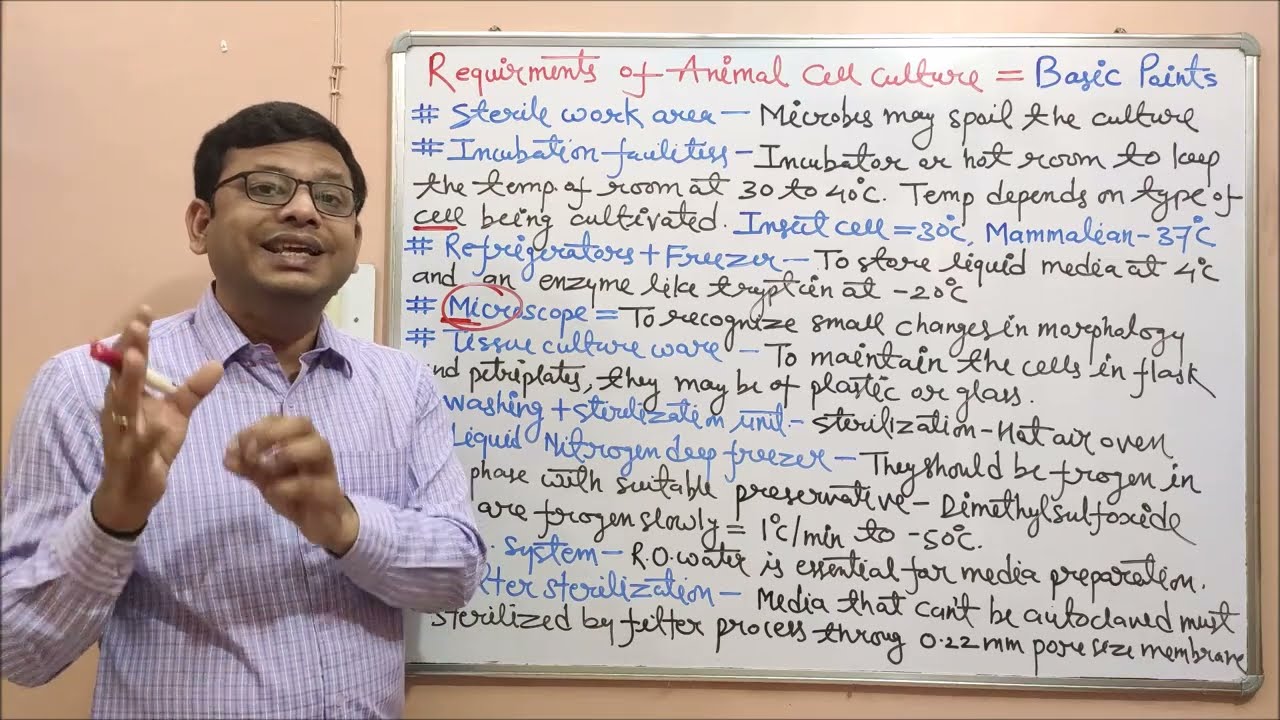 Requirments of Animal Cell culture = Basic Points
# Sterile work area - Microbes may spoil the culture
# Incubation faulities - Incubator or hot room to keep
the temp. of room at 30 to 40°C. Temp depends on type of
cell being cultivated. Insect cell = 30°C, Mammalean - 37°C
# Refrigerators + Freezer - To store liquid media at 4°C
and an enzyme like tryptcin at -20°C
# Microscope = To recognize small changes in morphology
# Tissue culture ware - To maintain the cells in flask
nd petriplates, they may be of plastic or glass.
washing + sterilization unit - sterilization - Hot air oven
Liquid Nitrogen deep freezer - They should be frogen in
phase with suitable preservative - Dimethylsulfoxide
are frogen slowly = 1°C/min to -50°C.
. System - R.O. water is essential for media preparation.
lter sterilization - Media that can't be autoclaved must
sterilized by filter process throug 0.22 mm pore size membrane